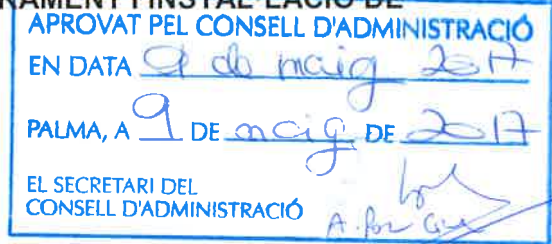 RAMENT I INSTAL·LACIÓ DE
APROVAT PEL CONSELL D'ADMINISTRACIÓ
EN DATA 9 de maig 2017
PALMA, A 9 DE maig DE 2017
EL SECRETARI DEL
CONSELL D'ADMINISTRACIÓ